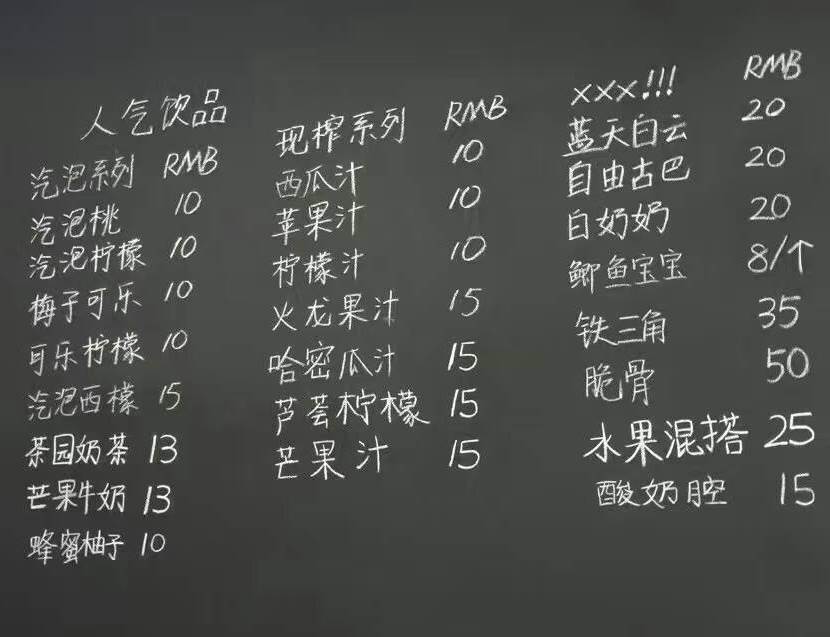 人气饮品
汽泡系列 RMB
汽泡桃 10
汽泡柠檬 10
梅子可乐 10
可乐柠檬 10
汽泡西檬 15
茶园奶茶 13
芒果牛奶 13
蜂蜜柚子 10
现榨系列 RMB
西瓜汁 10
苹果汁 10
柠檬汁 10
火龙果汁 15
哈密瓜汁 15
芦荟柠檬 15
芒果汁 15
xxx!!! RMB
蓝天白云 20
自由古巴 20
白奶奶 20
鲫鱼宝宝 8/个
铁三角 35
脆骨 50
水果混搭 25
酸奶腔 15